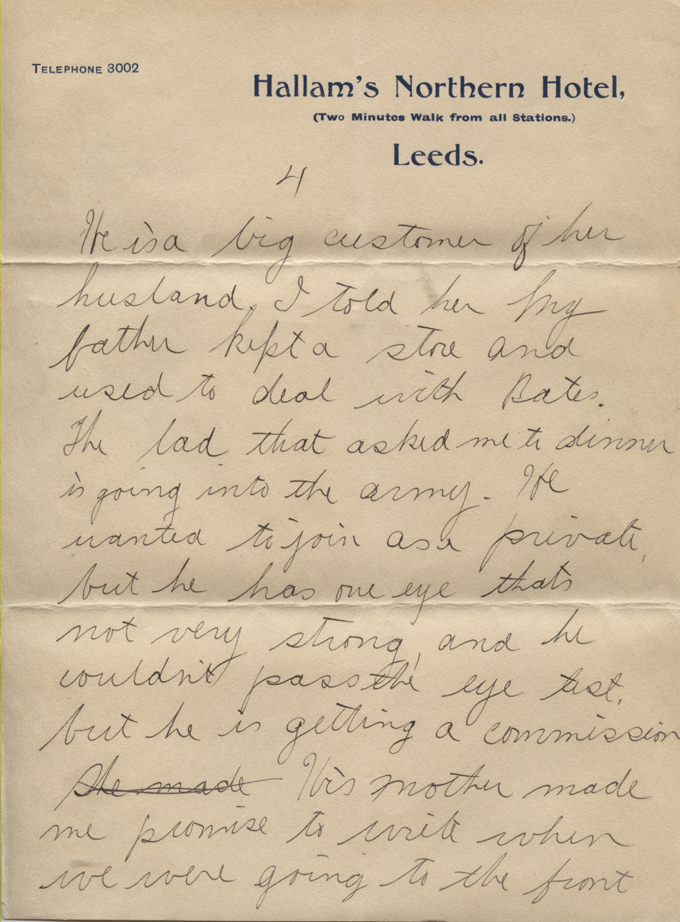 TELEPHONE 3002
Hallam's Northern Hotel,
(Two Minutes Walk from all Stations.)
Leeds.
4
He is a big customer of her
husband. I told her my
father kept a store and
used to deal with Bates.
The lad that asked me to dinner
is going into the army. He
wanted to join as a private,
but he has one eye thats
not very strong, and he
couldn't pass the eye test,
but he is getting a commission
She made His mother made
me promise to write when
we were going to the front